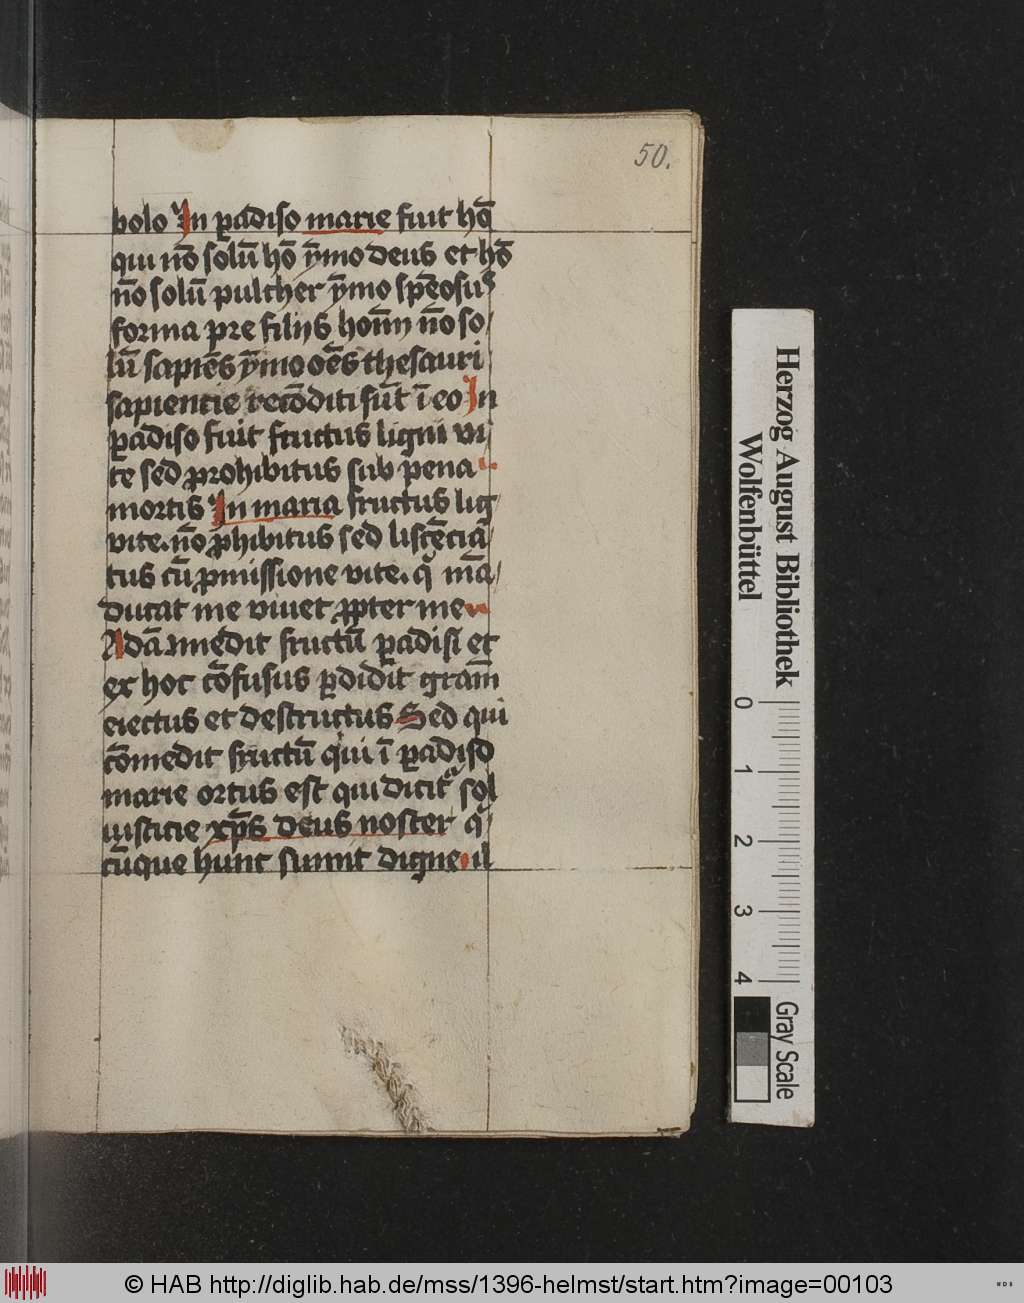 50.
bolo In ꝑadiso marie fuit hō
qui nō solū hō ẏmo deus et hō
nō solū pulcher ẏmo spēosus
forma pre filijs hoīm nō so/
lū sapiēs ẏmo oēs thesauri
sapiencie recōditi sūt ī eo In
ꝑadiso fuit fructus ligni vi/
te sed prohibitus sub pena
mortis In maria fructus lig/
vite. nō ꝓhibitus sed liscēcia/
tus cū ꝓmissione vite. q̄ mā/
ducat me viuet ꝓpter me
Adā comedit fructū ꝑadisi et
ex hoc cōfusus ꝑdidit gram̄
eiectus et destructus Sed qui
cōmedit fructū qui ī ꝑadiso
marie ortus est qui dicit᷑ sol
iusticie xp̄s deus noster q̄/
cūque hunc sumit digne il
Herzog August Bibliothek
Wolfenbüttel
0 1 2 3 4
Gray Scale
© HAB http://diglib.hab.de/mss/1396-helmst/start.htm?image=00103